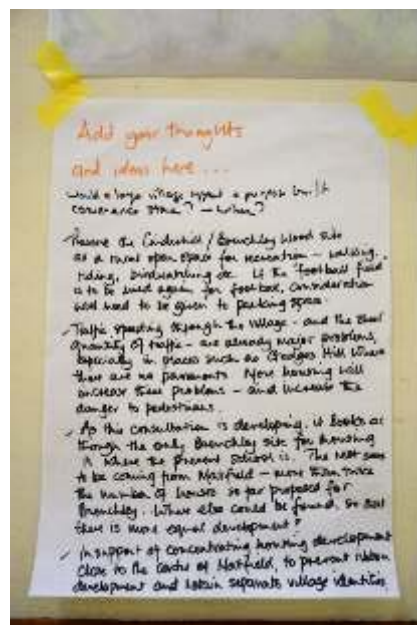 Add your thoughts
and ideas here...
would a large village support a purpose built
convenience store? - when?
Preserve the / Brenchley Wood site
as a rural open space for recreation - walking,
riding, birdwatching etc. If the football field
is to be used again for football, consideration
will need to be given to parking space
Traffic speeding through the village - and the sheer
quantity of traffic - are already major problems,
especially in places such as Hill where
there are no pavements. More housing will
increase these problems - and increase the
danger to pedestrians.
As this consultation is developing, it looks as
though the only Brenchley site for housing
is where the present school is. The rest seem
to be coming from Matfield - more than twice
the number of houses so far proposed for
Brenchley. Where else could be found, so that
there is more equal development?
In support of concentrating housing development
close to the centre of Matfield, to prevent ribbon
development and retain separate village identities.